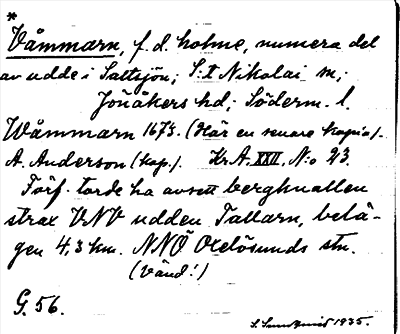 *
Våmmarn, f. d. holme, numera del
av udde i Saltsjön; S:t Nikolai sn;
Jönåkers hd; Söderm. l.
Wåmmarn 1673. (Här en senare kopia).
A. Anderson (kop.). Kr. A. XXII, N:o 23.
Förf. torde ha avsett bergknallen
strax VNV udden Tallarn, belä-
gen 4,3 km. NNÖ Oxelösunds stn.
(Vänd!)
G. 56.
S. Sundquist 1935.